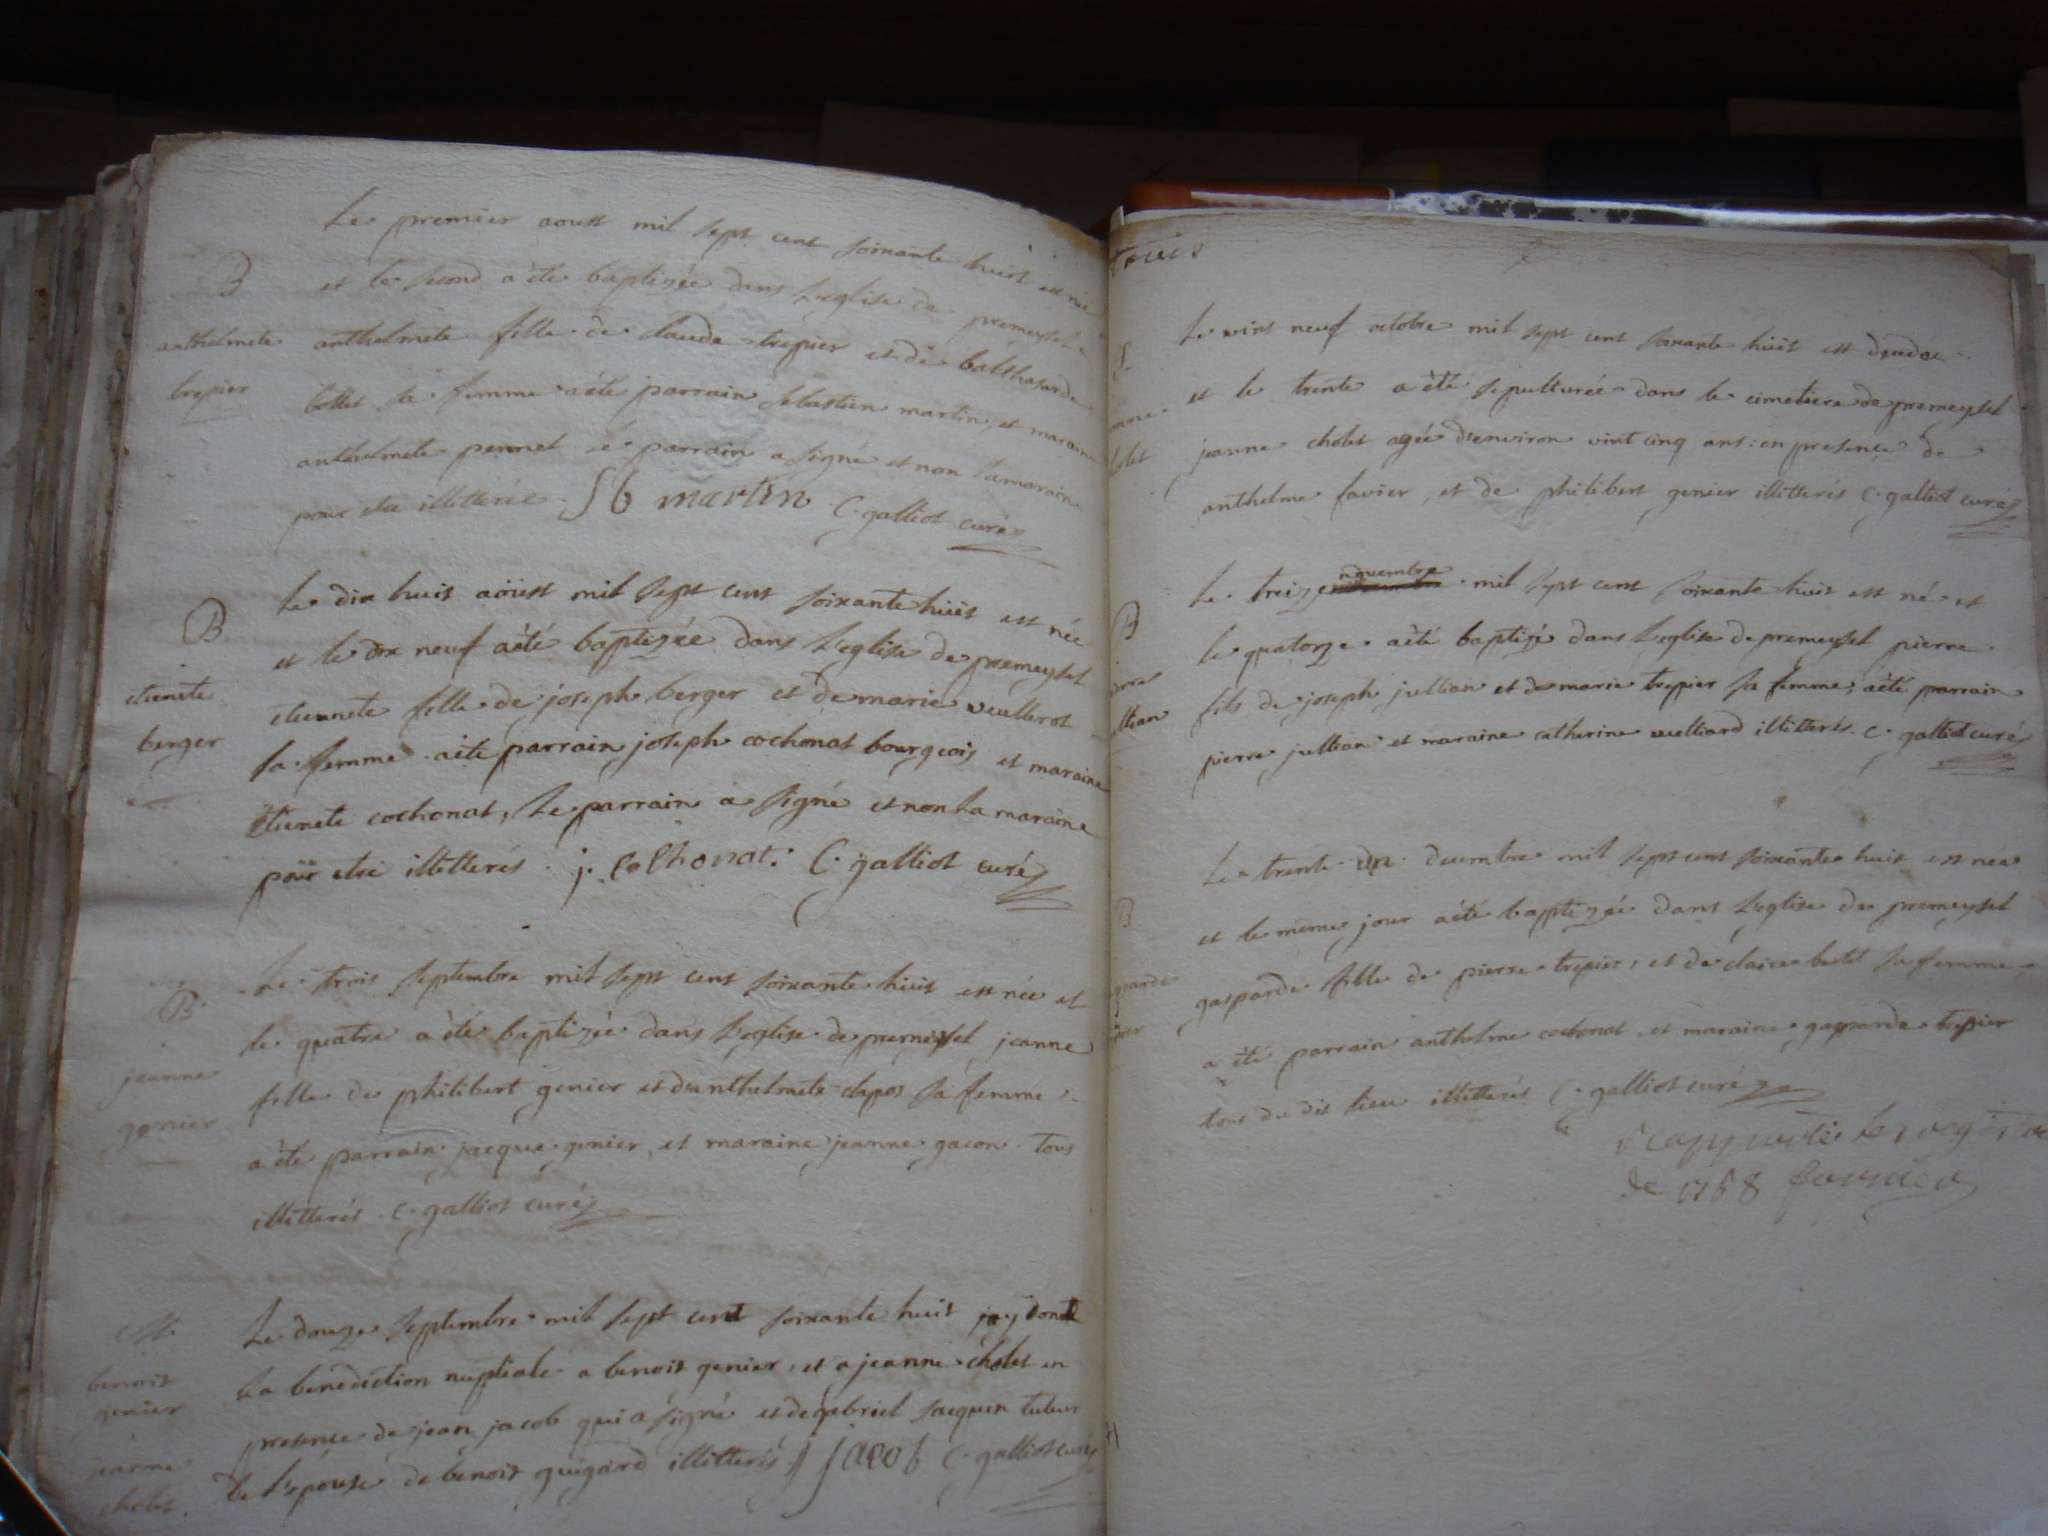 Le premier aoust mil sept cent soixante huit est née
B
et le second a été baptizée dans l'eglise de premeysel
anthelmete
anthelmete fille de claude trepier et de balthasarde
trepier
bettet sa femme a été parrain sebastien martin, et maraine
anthelmete pennet le parrain a signé et non la maraine
pour etre illitterée. Sb martin C. galliot curé
Le dix huit aoust mil sept cent soixante huit est née
B
et le dix neuf a été baptizée dans l'eglise de premeysel
etienete
etiennete fille de joseph berger et de marie veullerot
berger
sa femme a été parrain joseph cochonat bourgeois et maraine
etienete cochonat, le parrain a signé et non la maraine
pour etre illitterés. j. Cochonat. C. galliot curé
Le trois septembre mil sept cent soixante huit est née et
B
le quatre a été baptizée dans l'eglise de premeysel jeanne
jeanne
fille de philibert genier et d'anthelmete clapos sa femme
genier
a été parrain jacque genier, et maraine jeanne gacon tous
illitterés. C. galliot curé
Le douze septembre mil sept cent soixante huit jay donné
benoit
la benediction nuptiale a benoit genier, et a jeanne cholet en
genier
presence de jean jacob qui a signé et de gabriel jacquin tuteur
jeanne
cholet
de l'epouse de benoit guigard illitterés J jacob C. galliot curé
trois
Le vint neuf octobre mil sept cent soixante huit est decedée
S
et le trente a été sepulturée dans le cimetiere de premeysel
jeanne cholet agée d'environ vint cinq ans: en presence de
anthelme favier, et de philibert genier illitterés C. galliot curé
Le treize novembre mil sept cent soixante huit est né et
B
le quatorze a été baptizé dans l'eglise de premeysel pierre
fils de joseph jullian et de marie trepier sa femme, a été parrain
pierre jullian et maraine catherine vuelliard illitterés. C. galliot curé
Le trente un decembre mil sept cent soixante huit est née
B
et le meme jour a été baptizée dans l'eglise de premeysel
gasparde fille de pierre trepier, et de claire bettet sa femme
a été parrain anthelme cochonat, et maraine gasparde trepier
tous du dit lieu illitterés C. galliot curé
de 1768